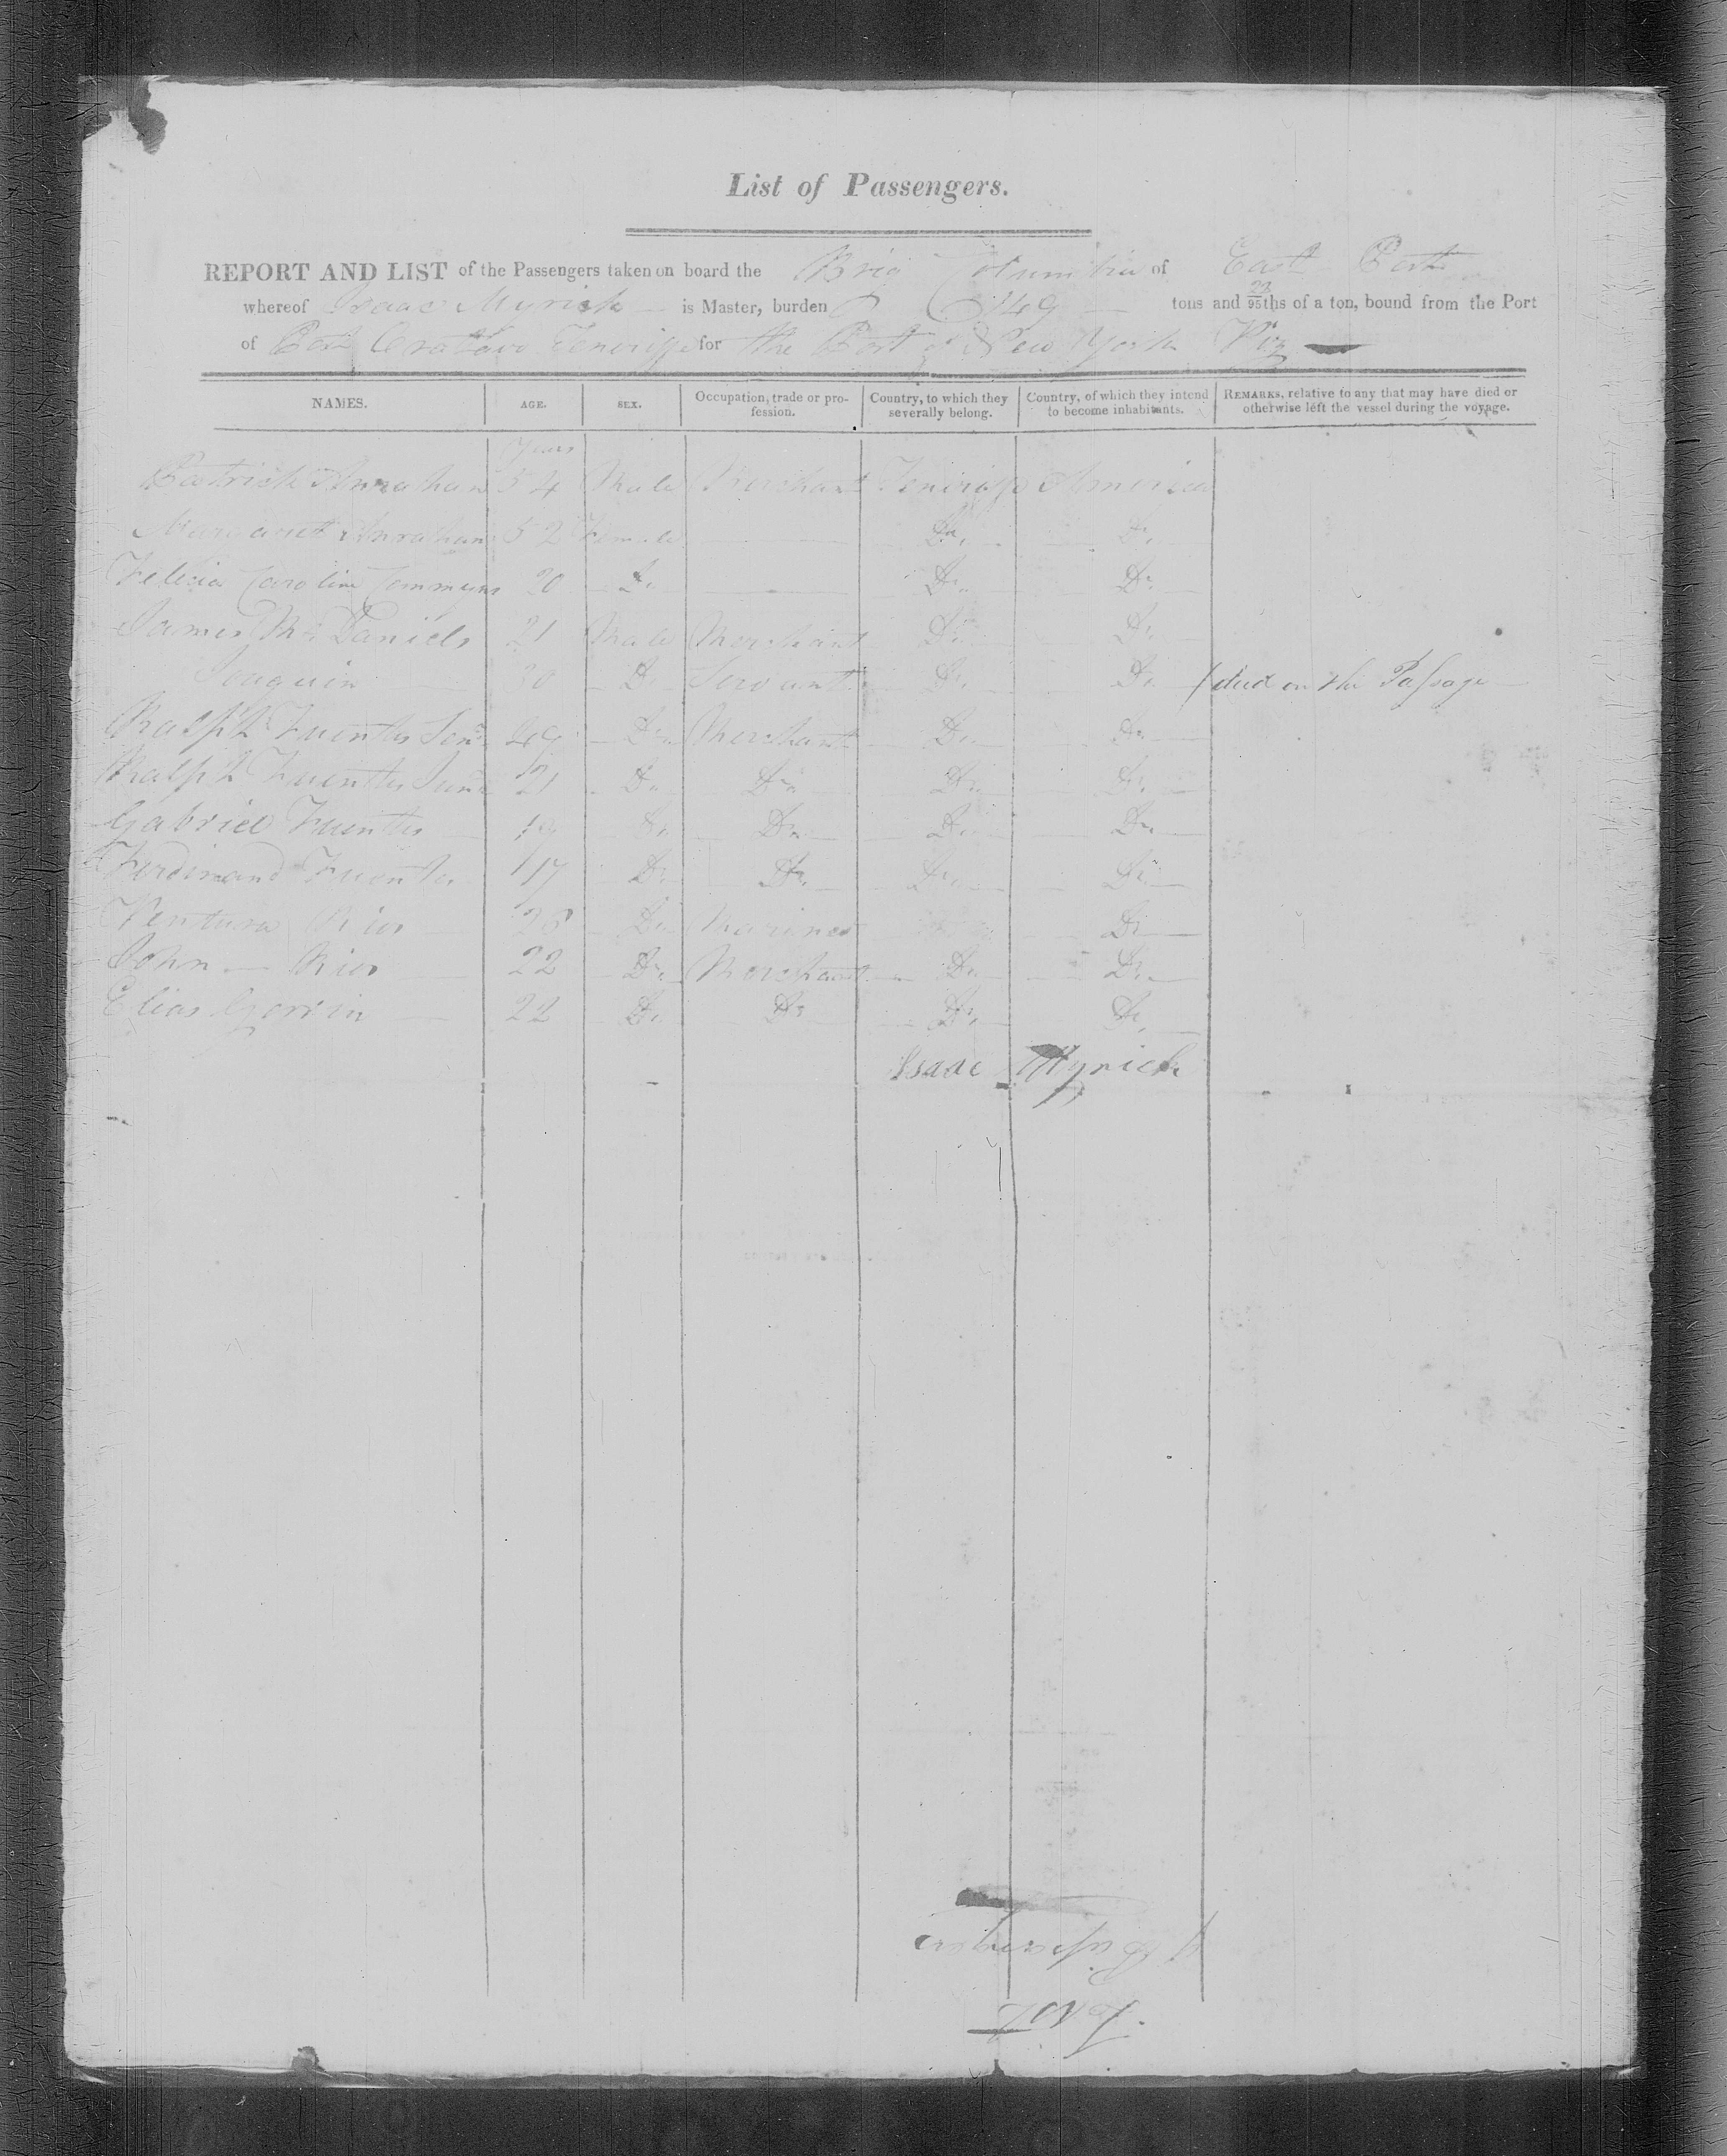 List of Passengers.
REPORT AND LIST of the Passengers taken on board the Brig Columbia of East Port
whereof Isaac Myrick is Master, burden 149 tons and 23/95ths of a ton, bound from the Port
of Port Oratavo Teneriffe for the Port of New York Viz
NAMES. AGE. SEX. Occupation, trade or profession. Country, to which they severally belong. Country, of which they intend to become inhabitants. REMARKS, relative to any that may have died or otherwise left the vessel during the voyage.
Years
Patrick 54 Male Merchant Teneriffe America
Margaret 52 Female Do. Do.
Felicia Caroline 20 Do. Do. Do.
James McDaniels 21 Male Merchant Do. Do.
Joaquin 20 Do. Servant Do. Do. died on the Passage
Ralph Fuentes Senr Do. Merchant Do. Do.
Ralph Fuentes Junr 21 Do. Do. Do. Do.
Gabriel Fuentes 19 Do. Do. Do. Do.
Ferdinand Fuentes 17 Do. Do. Do. Do.
Ventura Rios Do. Mariner Do.
John Rios 22 Do. Merchant Do. Do.
Elias 22 Do. Do. Do. Do.
Isaac Myrick
Passengers